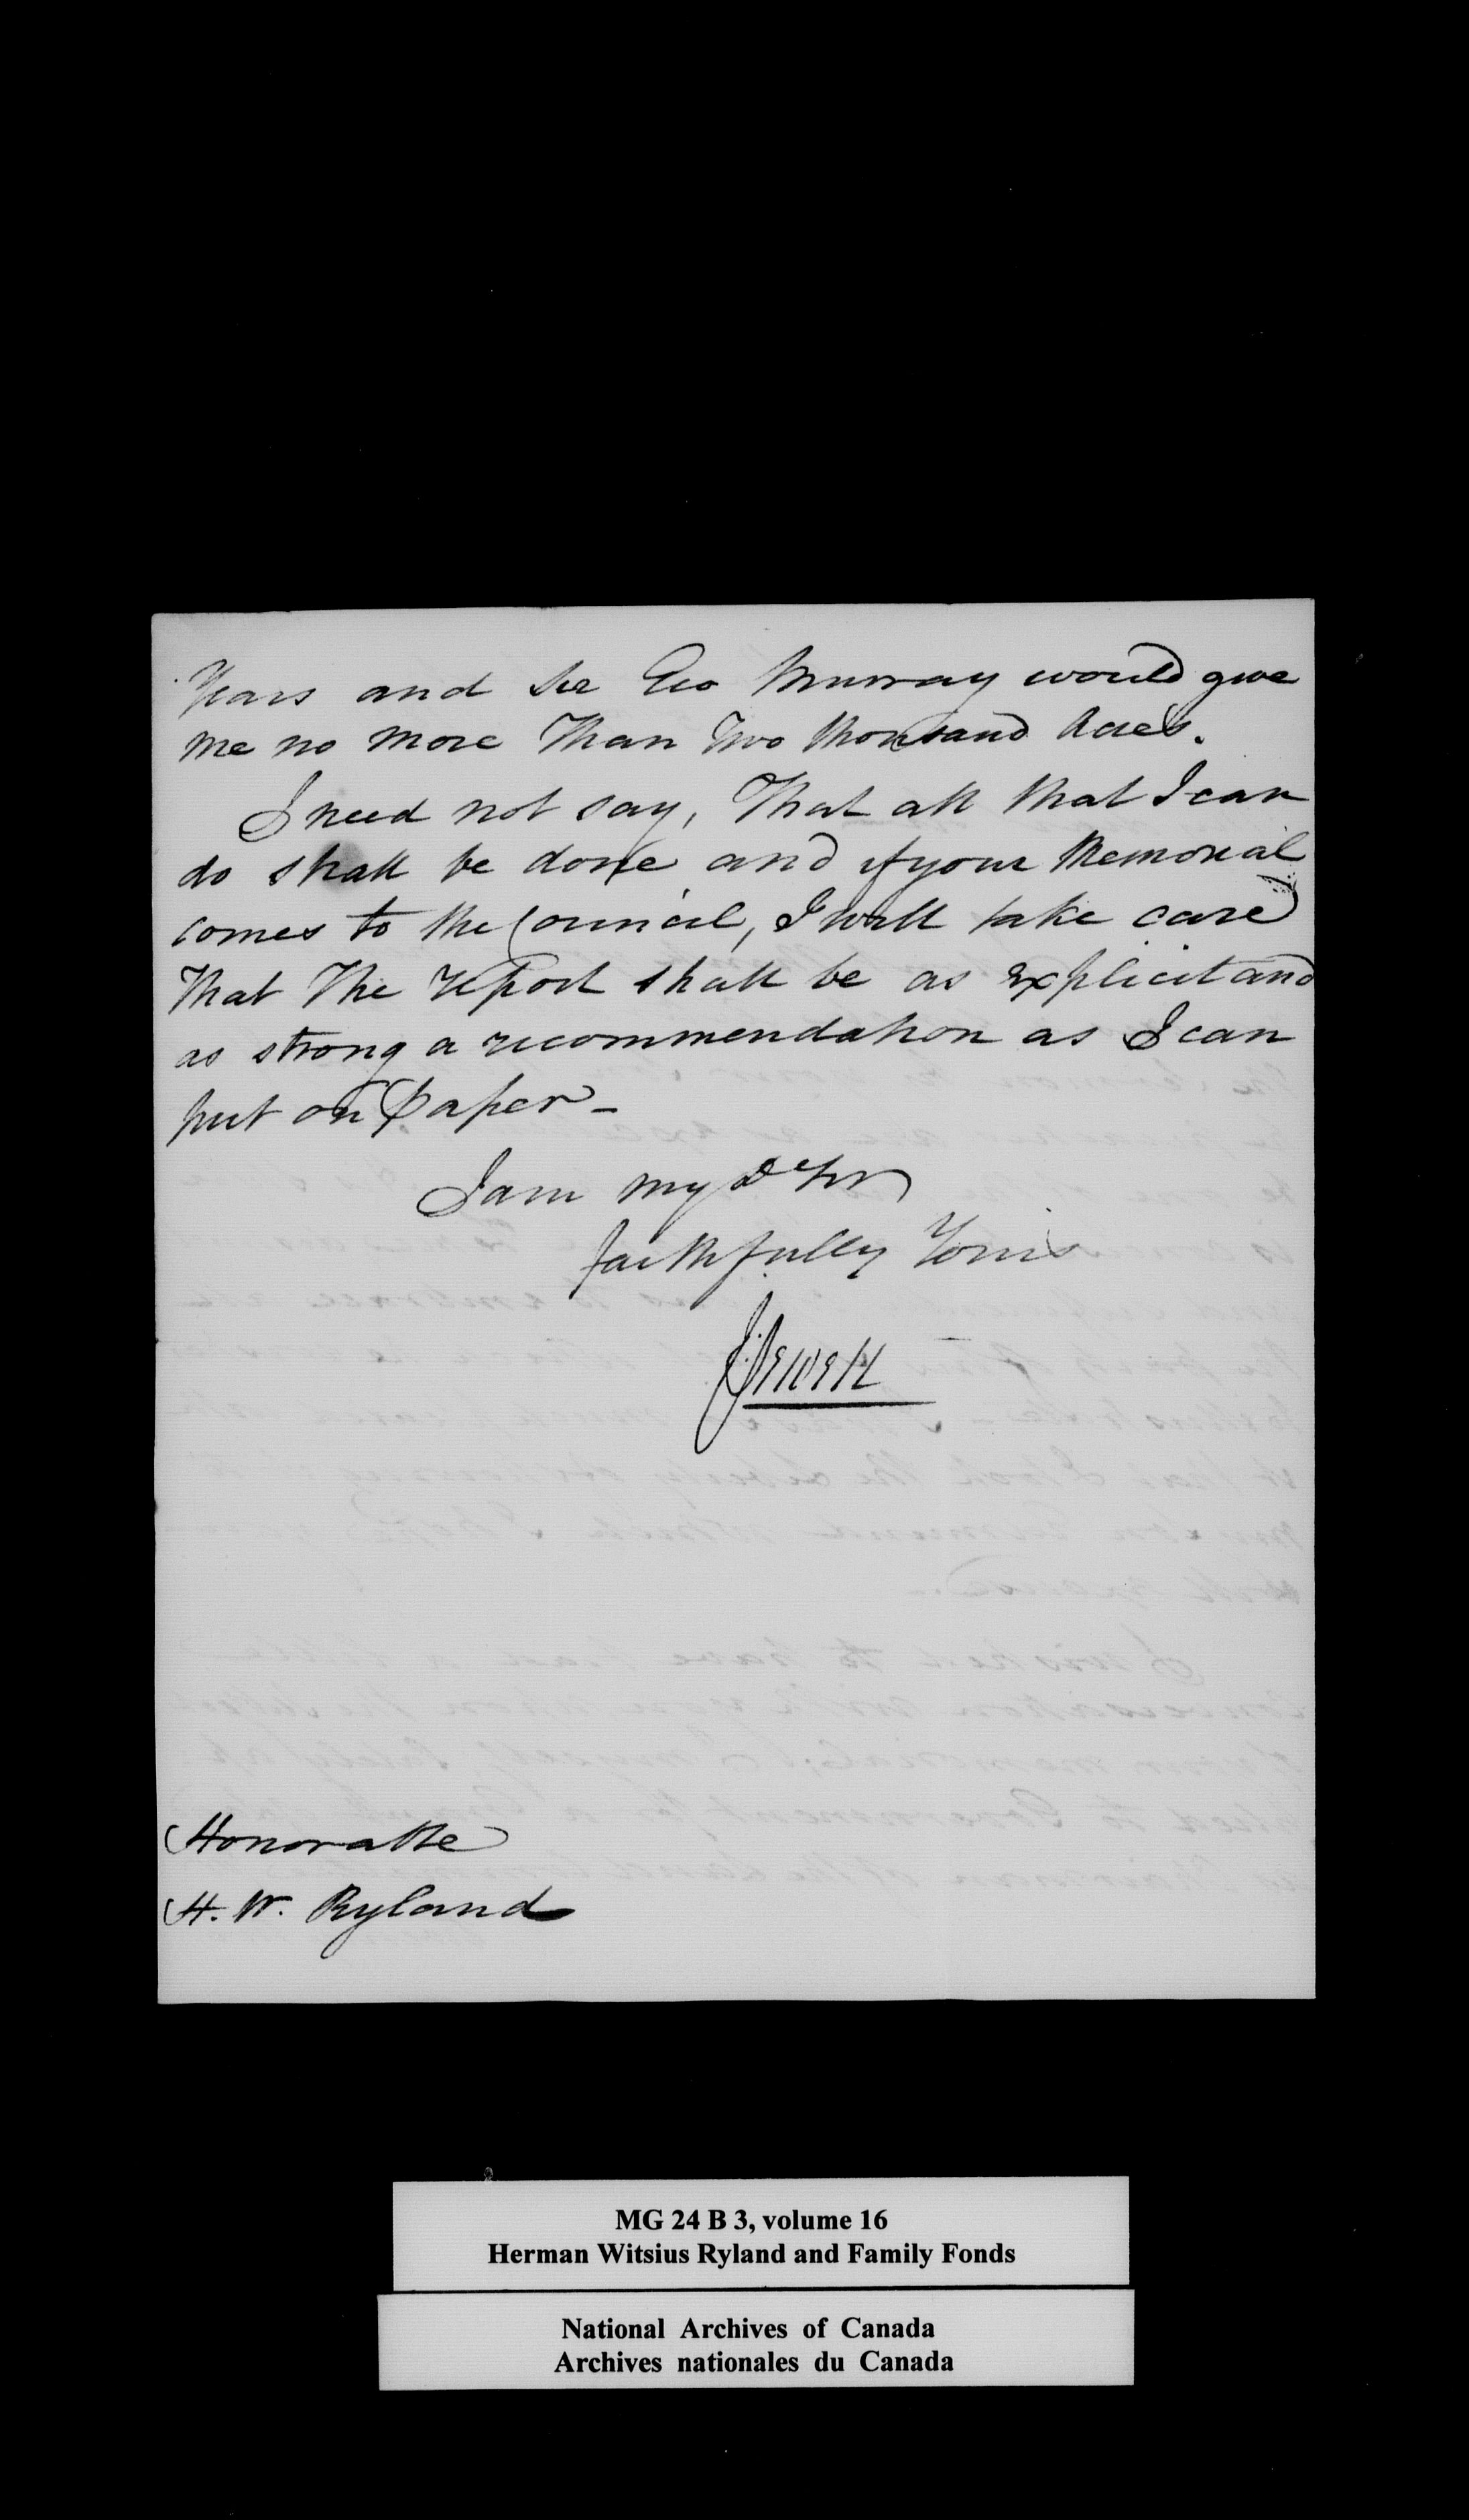 Years and Sir Geo Murray would give
me no more Than Two thousand Acres.
I need not say, That all that I can
do shall be done and if your Memorial
comes to the Council, I will take care
That The report shall be as explicit and
as strong a recommendation as I can
put on paper _
I am my Dr Sir
faithfully Yours
J: Sewell
Honorable
H. W. Ryland
MG 24 B 3, volume 16
Herman Witsius Ryland and Family Fonds
National Archives of Canada
Archives nationales du Canada